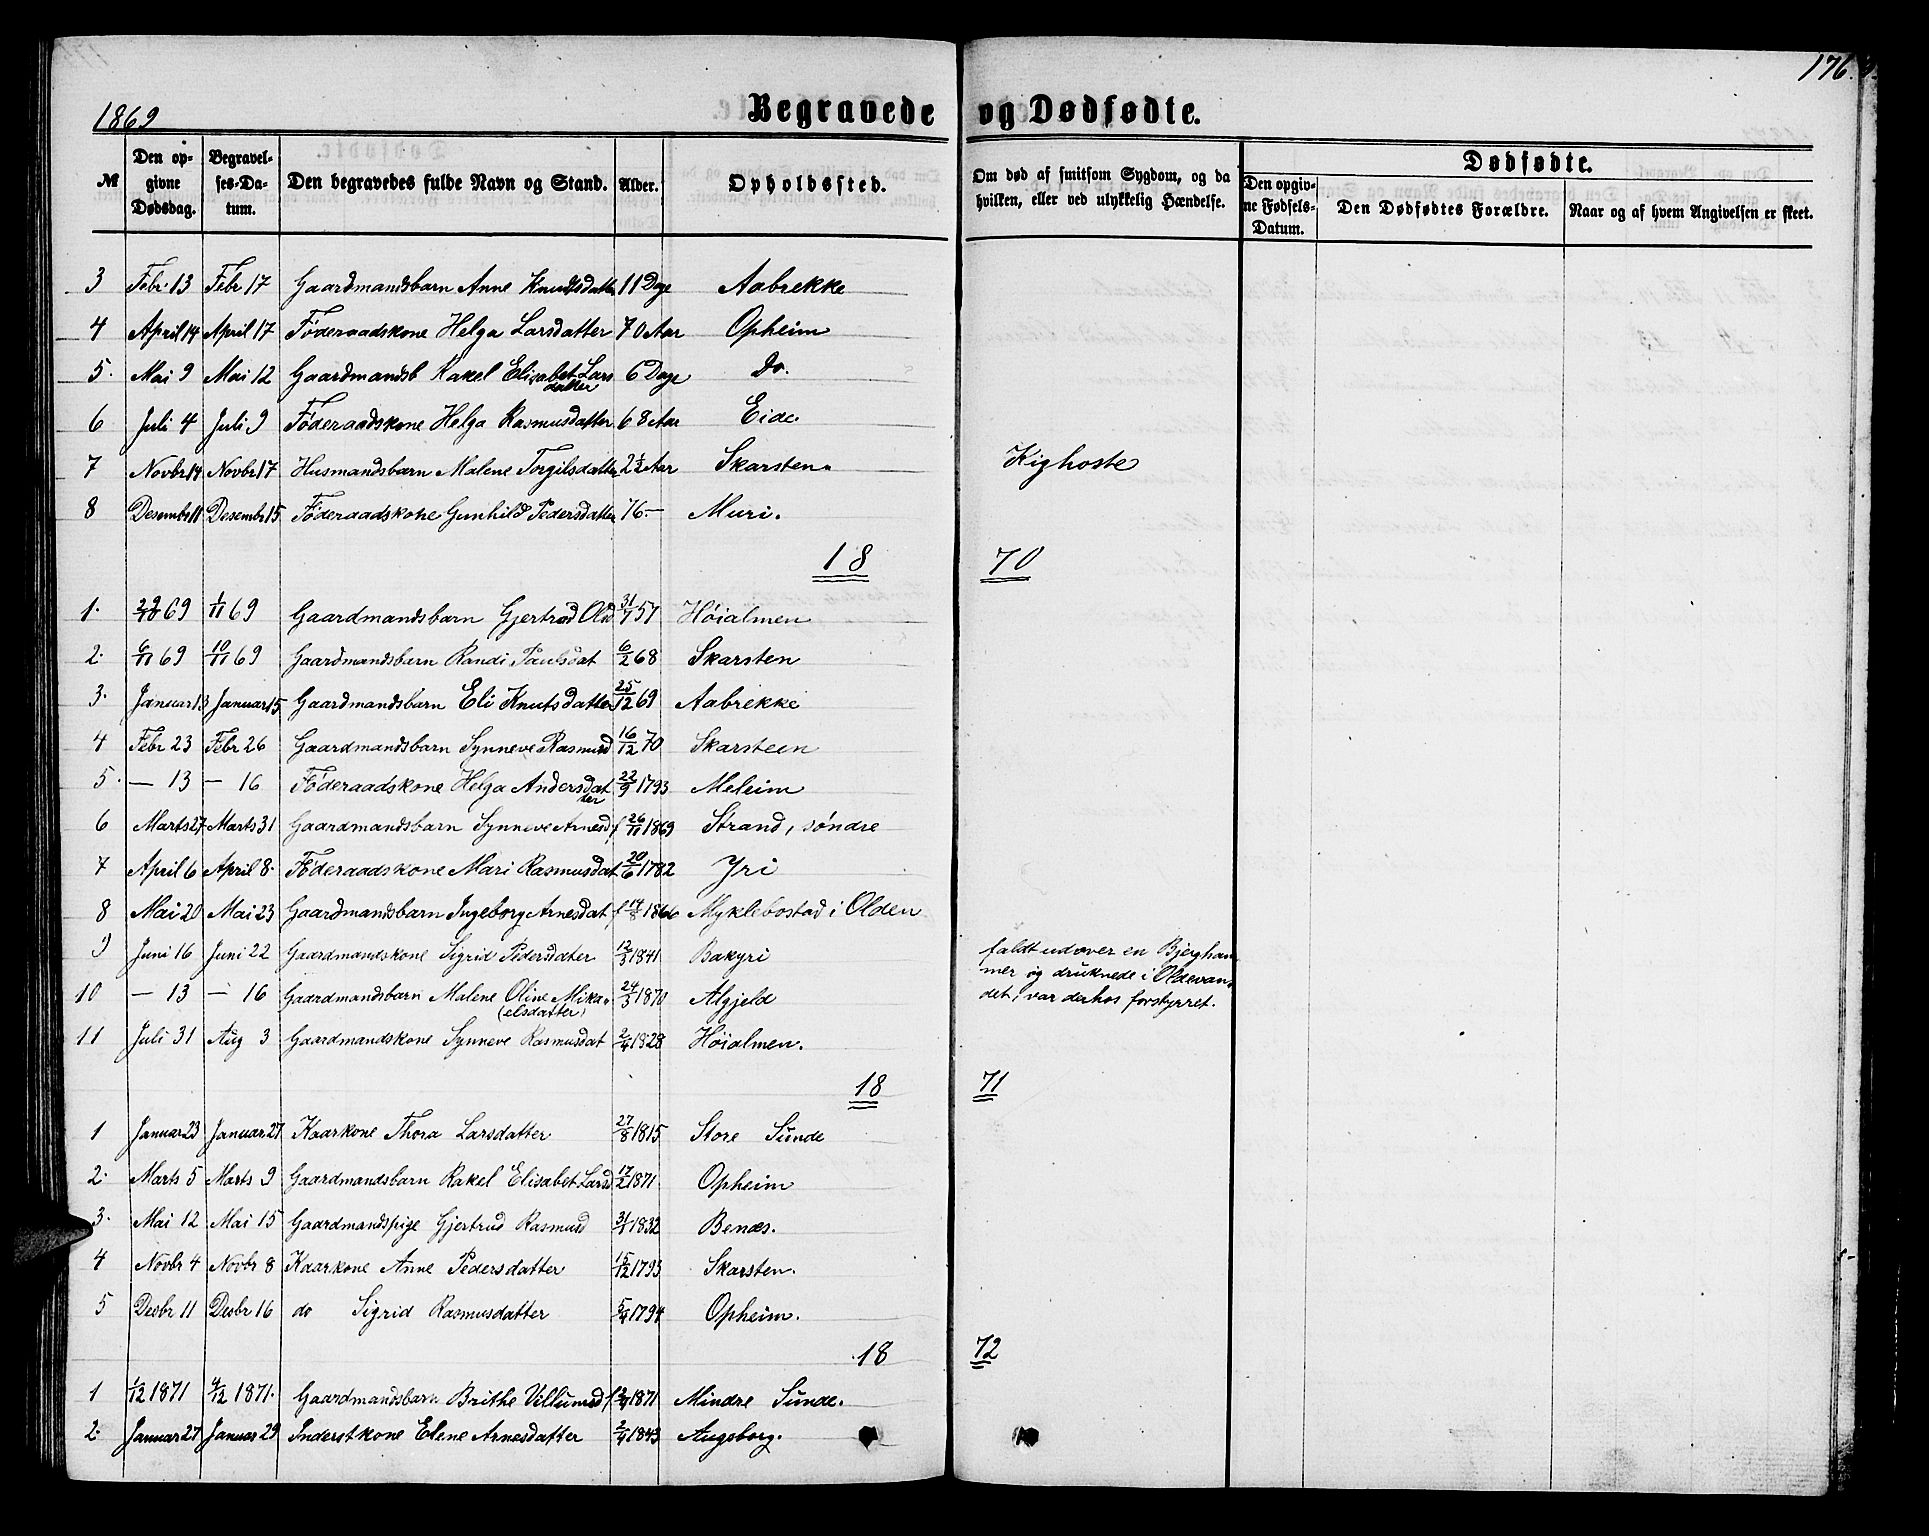 176.
1869
Begravede og Dødfødte.
№ Den opgivne Dødsdag. Begravelses-Datum. Den begravedes fulde Navn og Stand. Alder. Opholdssted. Om død af smitsom Sygdom, og da hvilken, eller ved ulykkelig Hændelse. Dødfødte. Den opgivne Fødsels-Datum. Den Dødfødtes Forældre. Naar og af hvem Angivelsen er skeet.
3 Febr. 13 Febr 17 Gaardmandsbarn Anne Knudsdatter 11 Dage Aabrekke
4 April 14 April 17 Føderaadskone Helga Larsdatter 70 Aar Opheim
5. Mai 9 Mai 12 Gaardmandsb Rakel Elisabet Lars datter 6 Dage Do.
6 Juli 4 Juli 9 Føderaadskone Helga Rasmusdatter 68 Aar Eide
7 Novbr 14 Novbr 17 Husmandsbarn Malene Torgilsdatter 2½ Aar Skarsten. Kighoste
8 Desembr 11 Desembr 15 Føderaadskone Gunhild Pedersdatter 76.— Muri.
18 70
1. 29/10 69 1/11 69 Gaardmandsbarn Gjertrud Olsd 31/7 57 Høialmen
2. 6/11 69 10/11 69 Gaardmandsbarn Randi Paulsdat 6/2 68 Skarsten
3. Januar 13 Januar 15 Gaardmandsbarn Eli Knutsdatter 25/12 69 Aabrekke
4 Febr 23 Febr 26 Gaardmandsbarn Synneve Rasmusd 16/12 70 Skarsteen
5. — 13 — 16 Føderaadskone Helga Andersdat ter 22/9 1793 Meleim
6 Marts 27 Marts 31 Gaardmandsbarn Synneve Arnesd f 26/11 1869 Strand, søndre
7 April 6 April 8. Føderaadskone Mari Rasmusdat 20/6 1782 Yri
8 Mai 20 Mai 23 Gaardmandsbarn Ingeborg Arnesdat f 14/8 1866 Myklebostad i Olden
9 Juni 16 Juni 22 Gaardmandskone Sigrid Pedersdater 12/3 1841 Bakyri faldt udover en Bjerghammer og druknede i Oldevandet, var derhos forstyrret.
10 — 13 — 16 Gaardmandsbarn Malene Oline Mika- (elsdatter) 24/3 1870 Algjeld
11 Juli 31 Aug 3 Gaardmandskone Synneve Rasmusdat 2/4 1828 Høialmen.
18 71
1 Januar 23 Januar 27 Kaarkone Thora Larsdatter 27/8 1815 Store Sunde
2. Marts 5 Marts 9 Gaardmandsbarn Rakel Elisabet Larsd 17/2 1871 Opheim
3. Mai 12 Mai 15 Gaardmandspige Gjertrud Rasmusd 31/1 1832 Benæs.
4 Novbr 4 Novbr 8 Kaarkone Anne Pedersdatter 15/12 1793 Skarsten.
5 Decbr 11 Decbr 16 do Sigrid Rasmusdatter 5/4 1794 Opheim.
18 72
1 1/12 1871 4/12 1871. Gaardmandsbarn Brithe Villumsd f 1871 Mindre Sunde.
2. Januar 27 Januar 29 Inderstkone Elene Arnesdatter 2/4 1843 Augsborg.